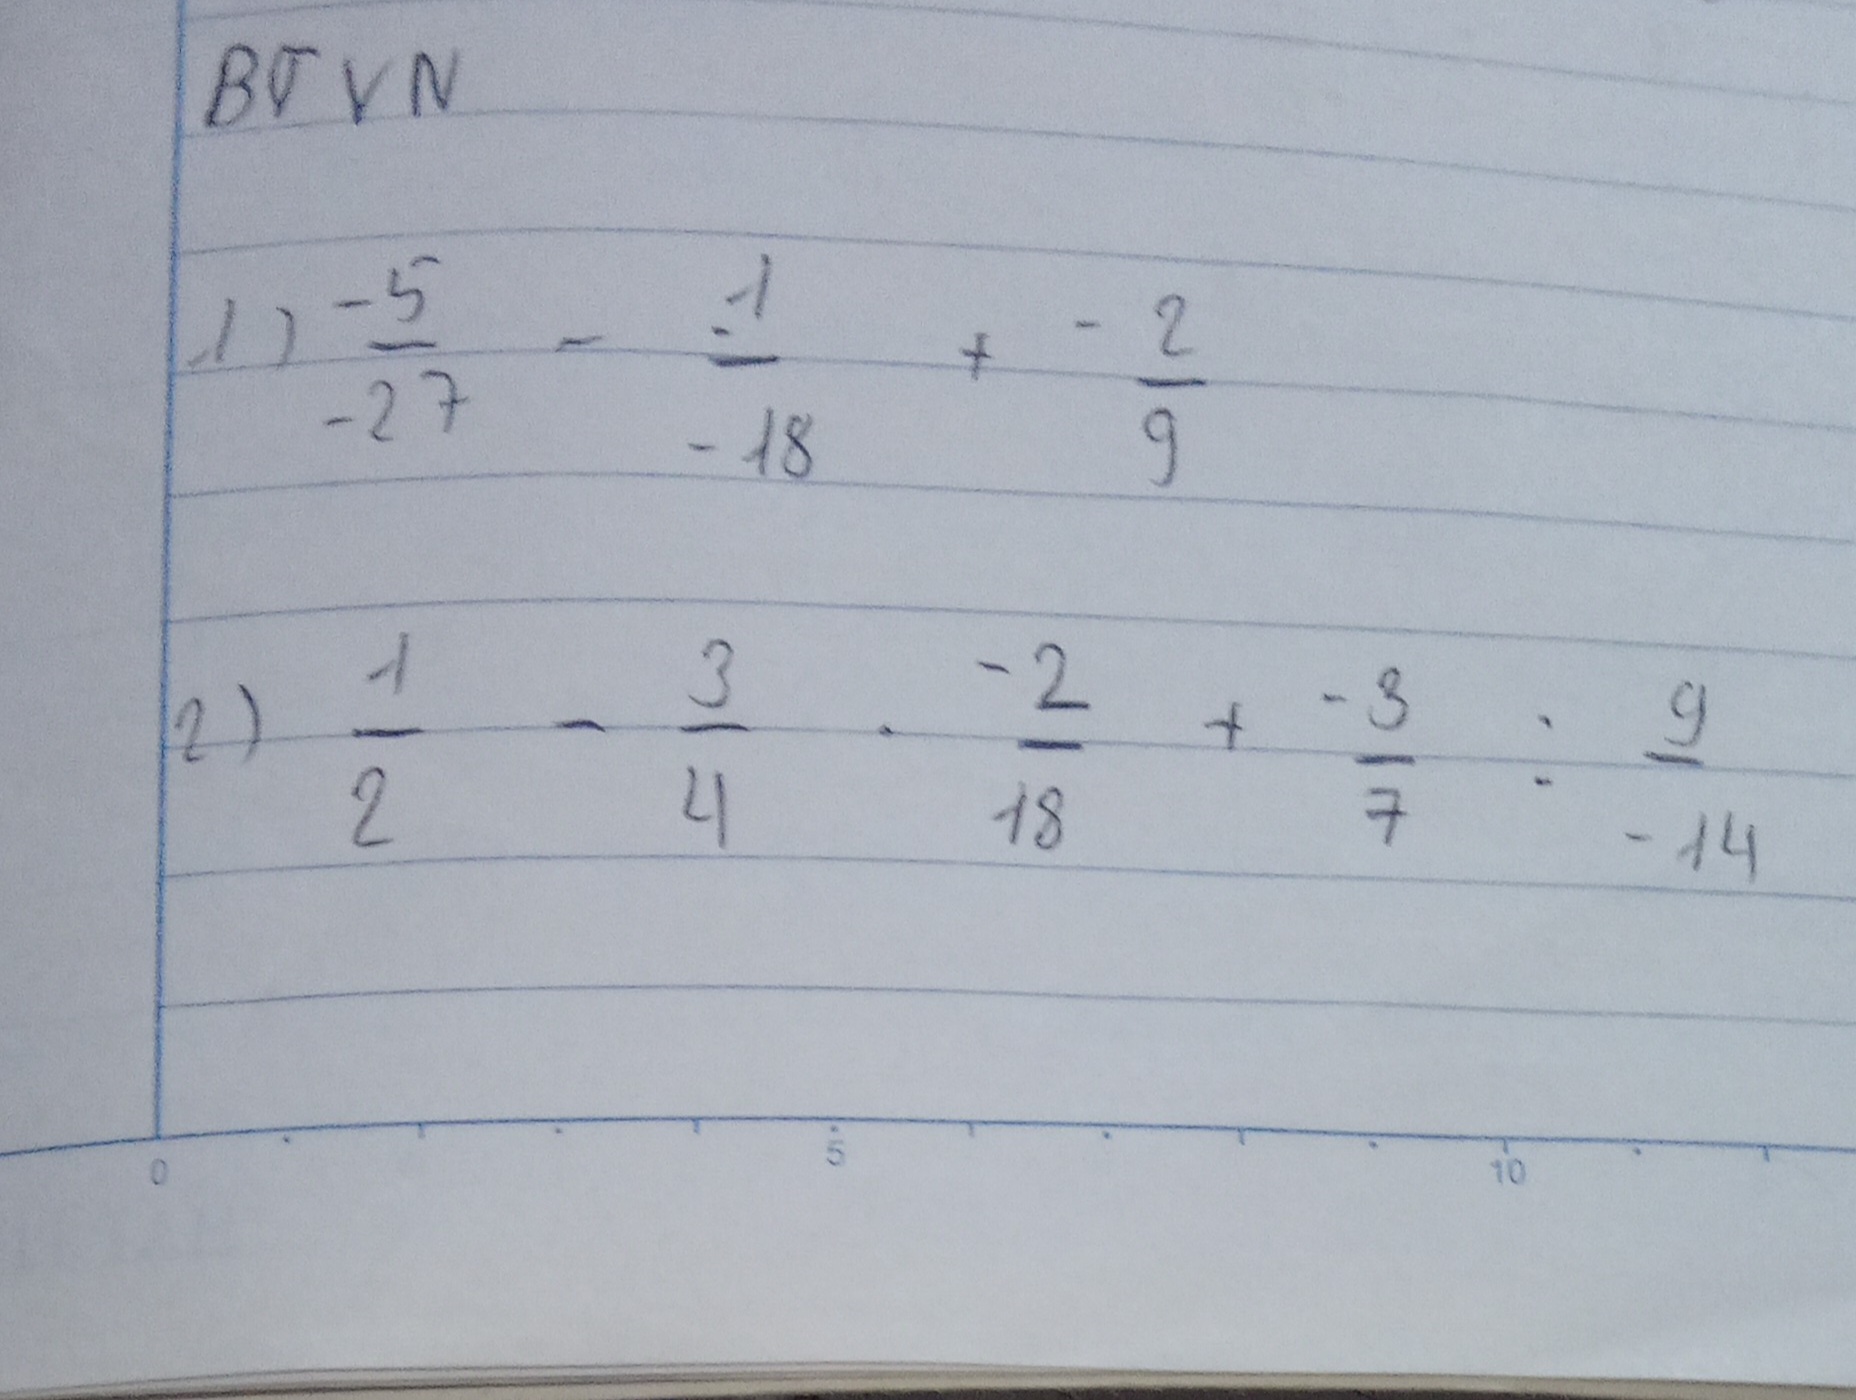 BTVN
1) -5/-27 - 1/-18 + -2/9
2) 1/2 - 3/4 . -2/18 + -3/7 : 9/-14
0 5 10